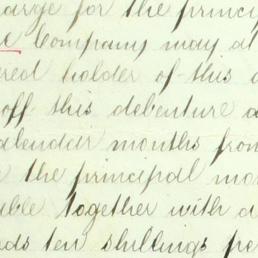 arge for the princi
e Company may at
ered holder of this d
off this debenture a
alendar months from
the principal mo
ble together with a
ds ten shillings pe